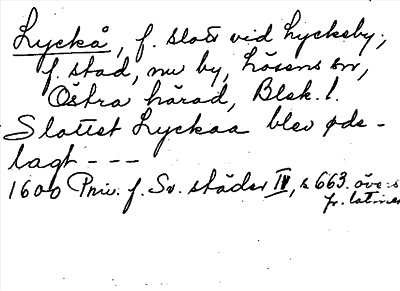 Lyckå, f. slott vid Lyckeby,
f. stad, nu by, Lösens sn,
Östra härad, Blek. l.
Slottet Lyckaa blev øde-
lagt - - -
1600 Priv. f. Sv. städer IV, s 663. övers
fr. latinet